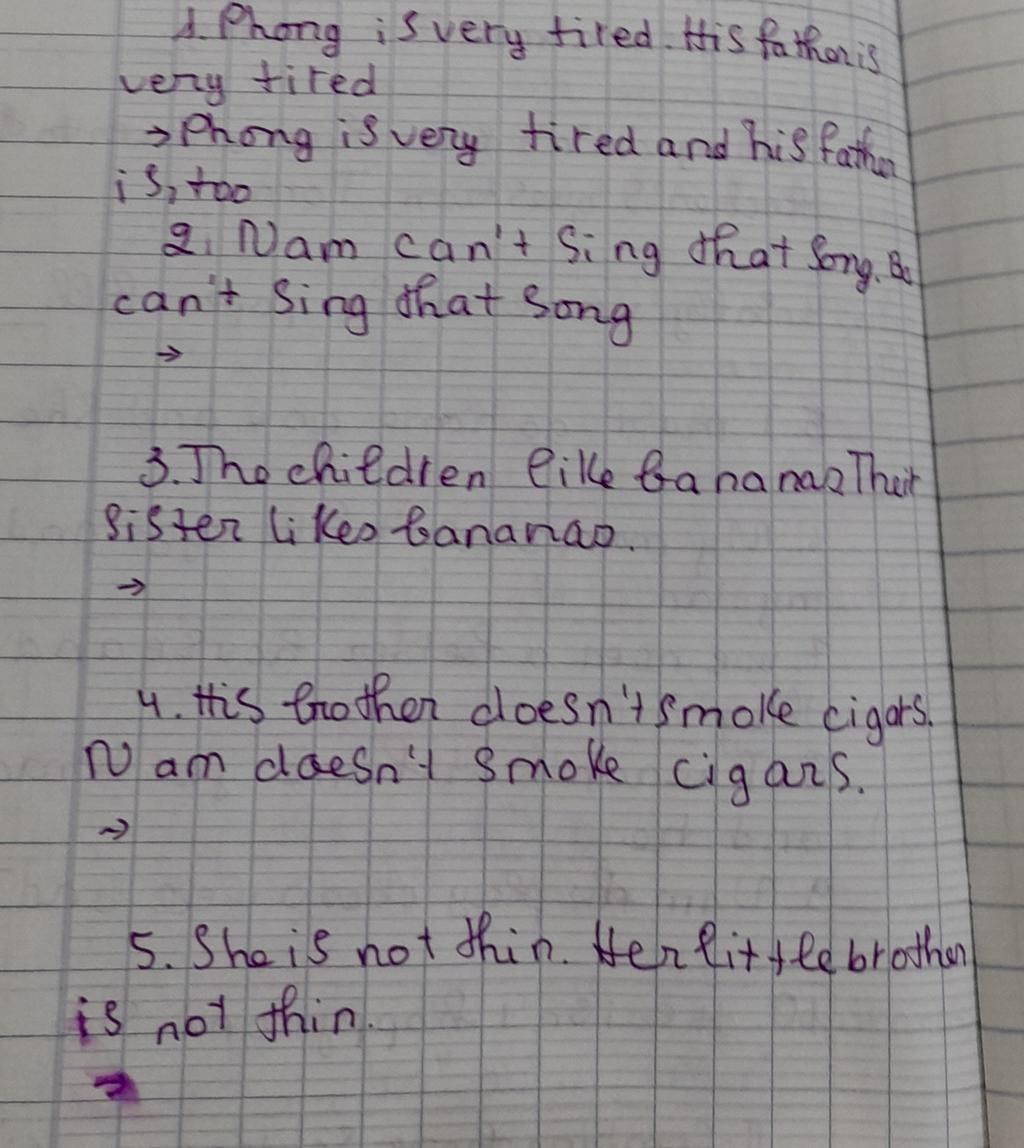 1. Phong is very tired. His father is
very tired
→ Phong is very tired and his father
is, too
2. Nam can't sing that song. Ba
can't sing that song
→
3. The children like bananas Their
sister likes bananas.
→
4. His brother doesn't smoke cigars.
Nam doesn't smoke cigars.
→
5. She is not thin. Her little brother
is not thin.
→